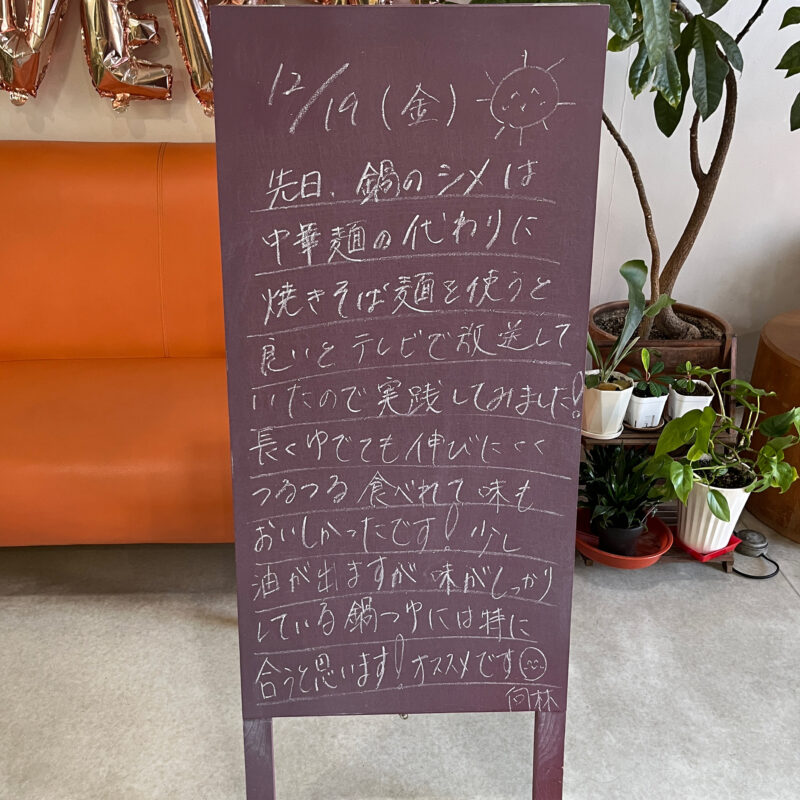 12/19(金)
先日、鍋のシメは
中華麺の代わりに
焼きそば麺を使うと
良いとテレビで放送して
いたので実践してみました!
長くゆでても伸びにくく
つるつる食べれて味も
おいしかったです!少し
油が出ますが味がしっかり
している鍋つゆには特に
合うと思います!オススメです
向林